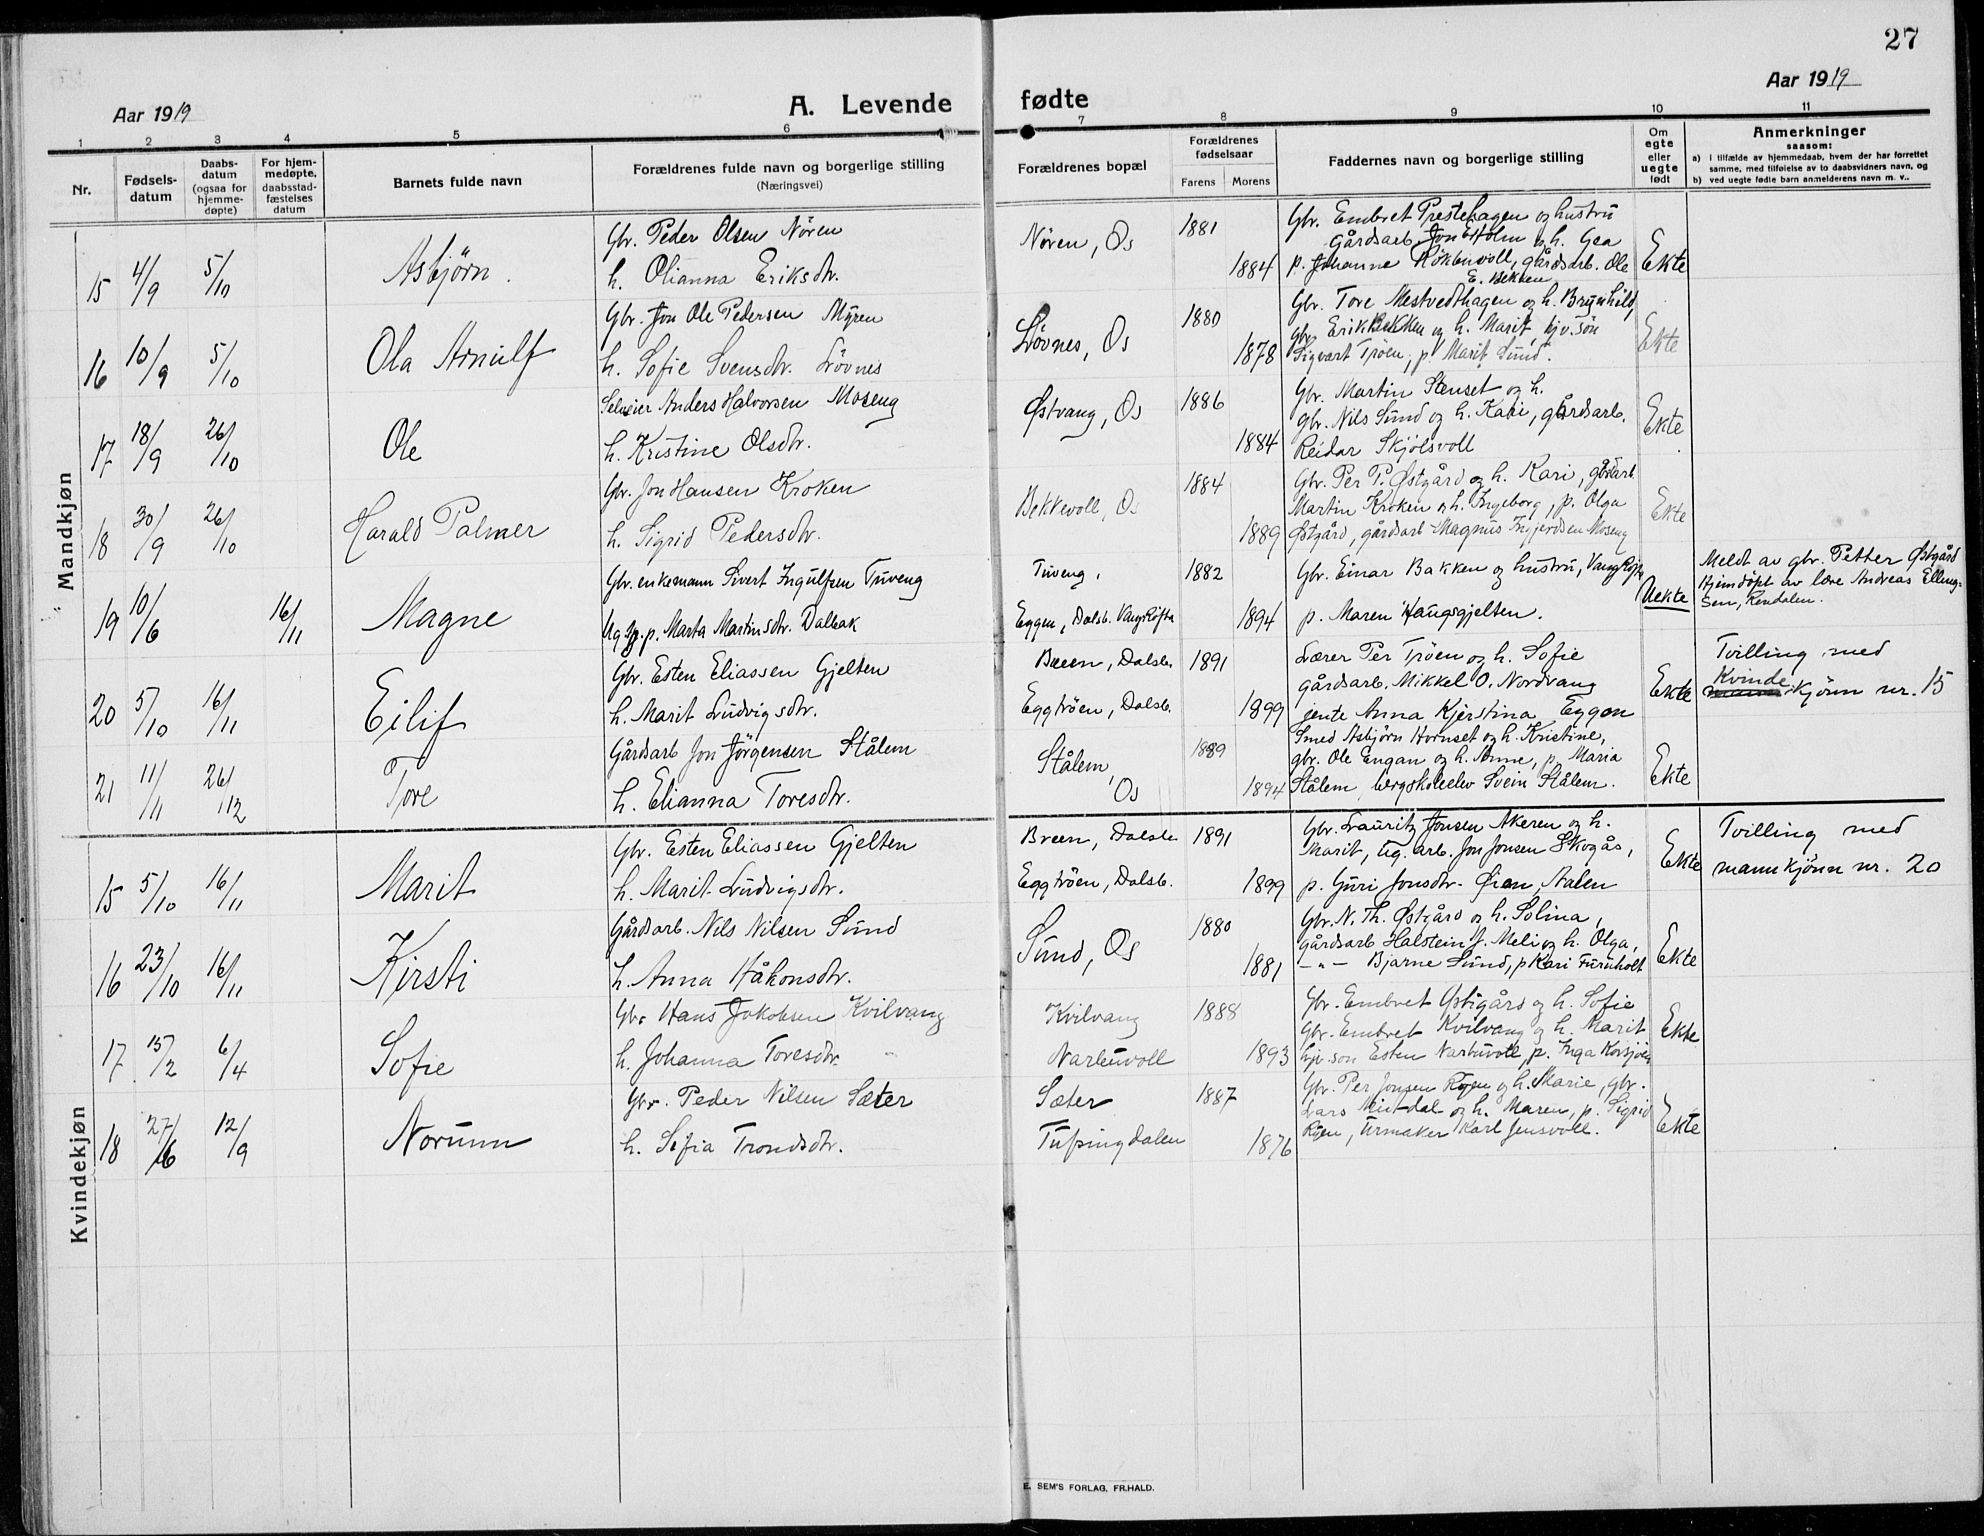 27
Aar 1919
A. Levende fødte
Aar 1919
1 2 3 4 5 6 7 8 9 10 11
Nr.
Fødsels-
datum
Daabs-
datum
(ogsaa for
hjemme-
døpte)
For hjem-
medøpte,
daabsstad-
fæstelses
datum
Barnets fulde navn
Forældrenes fulde navn og borgerlige stilling
(Næringsvei)
Forældrenes bopæl
Forældrenes
fødselsaar
Farens Morens
Faddernes navn og borgerlige stilling
Om
egte
eller
uegte
født
Anmerkninger
saasom:
a) i tilfælde av hjemmedaab, hvem der har forrettet
samme, med tilføielse av to daabsvidners navn, og
b) ved uegte fødte barn anmelderens navn m. v..
Mandkjøn
15 4/9 5/10 Asbjörn.
Gbr. Peder Olsen Nören
h. Olianna Eriksdtr.
Nören, Os
1881 1884
Gbr. Embret Prestehagen og hustru
Gårdsarb. Jon E Holm og h. Gea
p. Johanne Rökkenvoll, gårdsarb. Ole
E. Bekken
Ekte
16 10/9 5/10 Ola Arnulf
Gbr. Jon Ole Pedersen Myren
h. Sofie Svensdtr. Lövnes
Lövnes, Os
1880 1878
Gbr. Tore Mestvedthagen og h. Brynhild,
gbr Erik Bekken og h. Marit hjv. sön
Sigvart Tröen, p Marit Sund.
Ekte
17 18/9 26/10 Ole
Selveier Anders Halvorsen Moseng
h. Kristine Olsdtr.
Østvang, Os
1886 1884
Gbr. Martin Stenset og h.
gbr. Nils Sund og h. Kari, gårdsarb.
Reidar Skjölsvoll
Ekte
18 30/9 26/10 Harald Palmer
Gbr. Jon Hansen Kroken
h. Sigrid Pedersdtr.
Bekkevoll, Os
1884 1889
Gbr. Per P. Østgård og h. Kari, gårdsarb
Martin Kroken og h. Ingeborg, p. Olga
Østgård, gårdsarb Magnus Ingjerdsen Moseng
Ekte
19 10/6 16/11 Magne
Gbr. enkemann Sivert Ingulfsen Tuveng
Ug p. Marta Martinsdtr. Dalbak
Tuveng,
Eggen, Dalsb. Vangröfta
1882 1894
Gbr. Einar Bakken og hustru, Vangröfta
p. Maren Haugsgjelten.
Uekte
Meldt av gbr. Petter Østgård
Hjemdöpt av lære Andreas Elling-
sen, Rendalen.
20 5/10 16/11 Eilif
Gbr. Esten Eliassen Gjelten
h. Marit Ludvigsdtr.
Breen, Dalsb.
Eggtröen, Dalsb.
1891 1899
Lærer Per Tröen og h. Sofie
gårdsarb. Mikkel O. Nordvang
jente Anna Kjerstina Eggen
Ekte
Tvilling med
Kvinde
mannkjönn nr. 15
21 11/11 26/12 Tore
Gårdsarb Jon Jörgensen Stålem
h. Elianna Toresdtr.
Stålem,
Os
1889 1894
Smed Asbjörn Hornset og h. Kristine,
gbr. Ole Engan og h. Anne, p. Maria
Stålem, bergskoleelev Svein Stålem.
Ekte
Kvindekjøn
15 5/10 16/11 Marit
Gbr. Esten Eliassen Gjelten
h. Marit Ludvigsdtr.
Breen, Dalsb.
Eggtröen, Dalsb.
1891 1899
Gbr. Lauritz Jonsen Akeren og h.
Marit, ug. arb. Jon Jonsen Skogås,
p. Guri Jonsdtr. Öien, Aalen
Ekte
Tvilling med
mannkjönn nr. 20
16 23/10 16/11 Kirsti
Gårdsarb. Nils Nilsen Sund
h. Anna Håkonsdtr.
Sund, Os
1880 1881
Gbr. N. Th. Østgård og h. Solina,
gårdsarb Halstein J. Meli og h. Olga,
-"- Bjarne Sund, p Kari Furuholt
Ekte
17 15/2 6/4 Sofie
Gbr Hans Jakobsen Kvilvang
h. Johanna Toresdtr.
Kvilvang
Narbuvoll
1888 1893
Gbr. Embret Östigård og h. Sofie
Gbr. Embret Kvilvang og h. Marit
hjv. sön Esten Narbuvoll, p. Inga Korsjöen
Ekte
18 27/6 12/9 Norunn
Gbr. Peder Nilsen Sæter
h. Sofia Trondsdtr.
Sæter
Tufsingdalen
1887 1876
Gbr. Per Jonsen Röen og h. Marie, gbr.
Lars Midtdal og h. Maren, p. Sigrid
Röen, urmaker Karl Jensvoll.
Ekte
E. SEM'S FORLAG, FR.HALD.